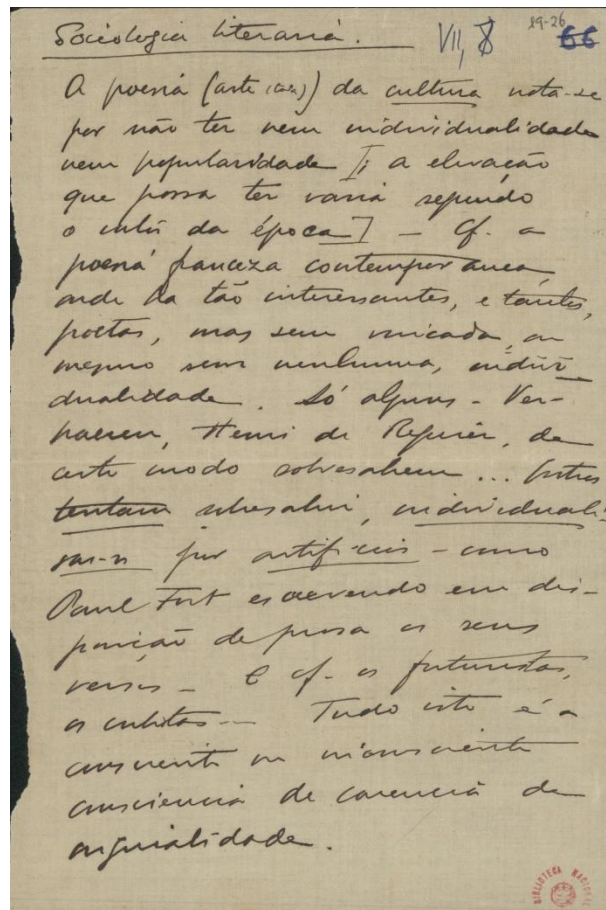 Sociologia literaria.
VII, 8
19-26
66
A poesia (arte) da cultura nota-se
por não ter nem individualidade
nem popularidade [; a elevação
que possa ter varia segundo
o da época] – Cf. a
poesia franceza contemporanea,
onde ha tão interessantes, e tantos,
poetas, mas sem marcada, ou
mesmo sem nenhuma, indivi-
dualidade. Só alguns – Ver-
haeren, Henri de Regnier, de
certo modo sobresahem... Outros
tentam sobresahir, individuali-
sar-se por artificios – como
Paul Fort escrevendo em dis-
posição de prosa os seus
versos – E cf. os futuristas,
os cubistas... Tudo isto é a
consciente ou inconsciente
consciencia de carencia de
originalidade.
BIBLIOTECA NACIONAL